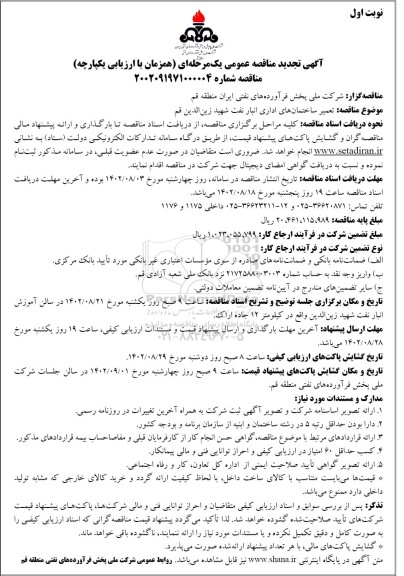 نوبت اول
آگهی تجدید مناقصه عمومی یک‌مرحله‌ای (همزمان با ارزیابی یکپارچه)
مناقصه شماره ۲۰۰۲۰۹۱۹۷۱۰۰۰۰۰۴
مناقصه‌گزار: شرکت ملی پخش فرآورده‌های نفتی ایران منطقه قم
موضوع مناقصه: تعمیر ساختمان‌های اداری انبار نفت شهید زین‌الدین قم
نحوه دریافت اسناد مناقصه: کلیه مراحل برگزاری مناقصه، از دریافت اسناد مناقصه تا بارگذاری و ارائه پیشنهاد مالی
مناقصه‌گران و گشایش پاکت‌های پیشنهاد قیمت، از طریق درگاه سامانه تدارکات الکترونیکی دولت (ستاد) به نشانی
www.setadiran.ir انجام خواهد شد. ضروری است متقاضیان در صورت عدم عضویت قبلی، در سامانه مذکور ثبت‌نام
نموده و نسبت به دریافت گواهی امضای دیجیتال جهت شرکت در مناقصه اقدام نمایند.
مهلت دریافت اسناد مناقصه: تاریخ انتشار مناقصه در سامانه، روز چهارشنبه مورخ ۱۴۰۲/۰۸/۰۳ بوده و آخرین مهلت دریافت
اسناد مناقصه ساعت ۱۹ روز پنجشنبه مورخ ۱۴۰۲/۰۸/۱۸ می‌باشد.
تلفن تماس: ۳۶۶۲۰۸۷۱-۰۲۵ و ۱۲-۳۶۶۲۳۲۱۱-۰۲۵ داخلی ۱۱۷۵ و ۱۱۷۶
مبلغ پایه مناقصه: ۲۰,۴۶۱,۱۱۵,۹۸۹ ریال
مبلغ تضمین شرکت در فرآیند ارجاع کار: ۱,۰۲۳,۰۵۵,۷۹۹ ریال
نوع تضمین شرکت در فرآیند ارجاع کار:
الف) ضمانت‌نامه بانکی و ضمانت‌نامه‌های صادره از سوی مؤسسات اعتباری غیر بانکی مورد تأیید بانک مرکزی.
ب) واریز وجه نقد به حساب شماره نزد بانک ملی شعبه آزادی قم.
ج) سایر تضمین‌های مندرج در آیین‌نامه تضمین معاملات دولتی.
تاریخ و مکان برگزاری جلسه توضیح و تشریح اسناد مناقصه: ساعت ۹ صبح روز یکشنبه مورخ ۱۴۰۲/۰۸/۲۱ در سالن آموزش
انبار نفت شهید زین‌الدین واقع در کیلومتر ۱۲ جاده اراک.
مهلت ارسال پیشنهاد: آخرین مهلت بارگذاری و ارسال پیشنهاد قیمت و مستندات ارزیابی کیفی، ساعت ۱۹ روز یکشنبه مورخ
۱۴۰۲/۰۸/۲۸ می‌باشد.
تاریخ گشایش پاکت‌های ارزیابی کیفی: ساعت ۸ صبح روز دوشنبه مورخ ۱۴۰۲/۰۸/۲۹.
تاریخ و مکان گشایش پاکت‌های پیشنهاد قیمت: ساعت ۹ صبح روز چهارشنبه مورخ ۱۴۰۲/۰۹/۰۱ در سالن جلسات شرکت
ملی پخش فرآورده‌های نفتی منطقه قم.
مدارک و مستندات مورد نیاز:
۱. ارائه تصویر اساسنامه شرکت و تصویر آگهی ثبت شرکت به همراه آخرین تغییرات در روزنامه رسمی.
۲. دارا بودن حداقل رتبه ۵ در رشته ساختمان و ابنیه از سازمان برنامه و بودجه کشور.
۳. ارائه قراردادهای مرتبط با موضوع مناقصه، گواهی حسن انجام کار از کارفرمایان قبلی و مفاصاحساب بیمه قراردادهای مذکور.
۴. کسب حداقل ۶۰ امتیاز در ارزیابی کیفی و احراز توانایی فنی و مالی پیمانکار.
۵. ارائه تصویر گواهی تأیید صلاحیت ایمنی از اداره کل تعاون، کار و رفاه اجتماعی.
* قیمت‌ها می‌بایست متناسب با کالای ساخت داخل، با لحاظ کیفیت ارائه گردد و خرید کالای خارجی که مشابه تولید
داخلی دارد ممنوع می‌باشد.
تذکر: پس از بررسی سوابق و اسناد ارزیابی کیفی متقاضیان و احراز توانایی فنی و مالی شرکت‌ها، پاکت‌های پیشنهاد قیمت
شرکت‌های تأیید صلاحیت‌شده گشوده خواهد شد. لذا تأکید می‌گردد پیشنهاد قیمت مناقصه‌گرانی که اسناد ارزیابی کیفی را
به صورت کامل و دقیق تکمیل نکرده و یا مستندات مورد نیاز را ارائه ننمایند، ناگشوده باقی خواهد ماند.
* گشایش پاکت‌های مالی، با هر تعداد پیشنهاد ارائه‌شده صورت می‌پذیرد.
متن آگهی در پایگاه اینترنتی www.shana.ir نیز قابل مشاهده می‌باشد. روابط عمومی شرکت ملی پخش فرآورده‌های نفتی منطقه قم